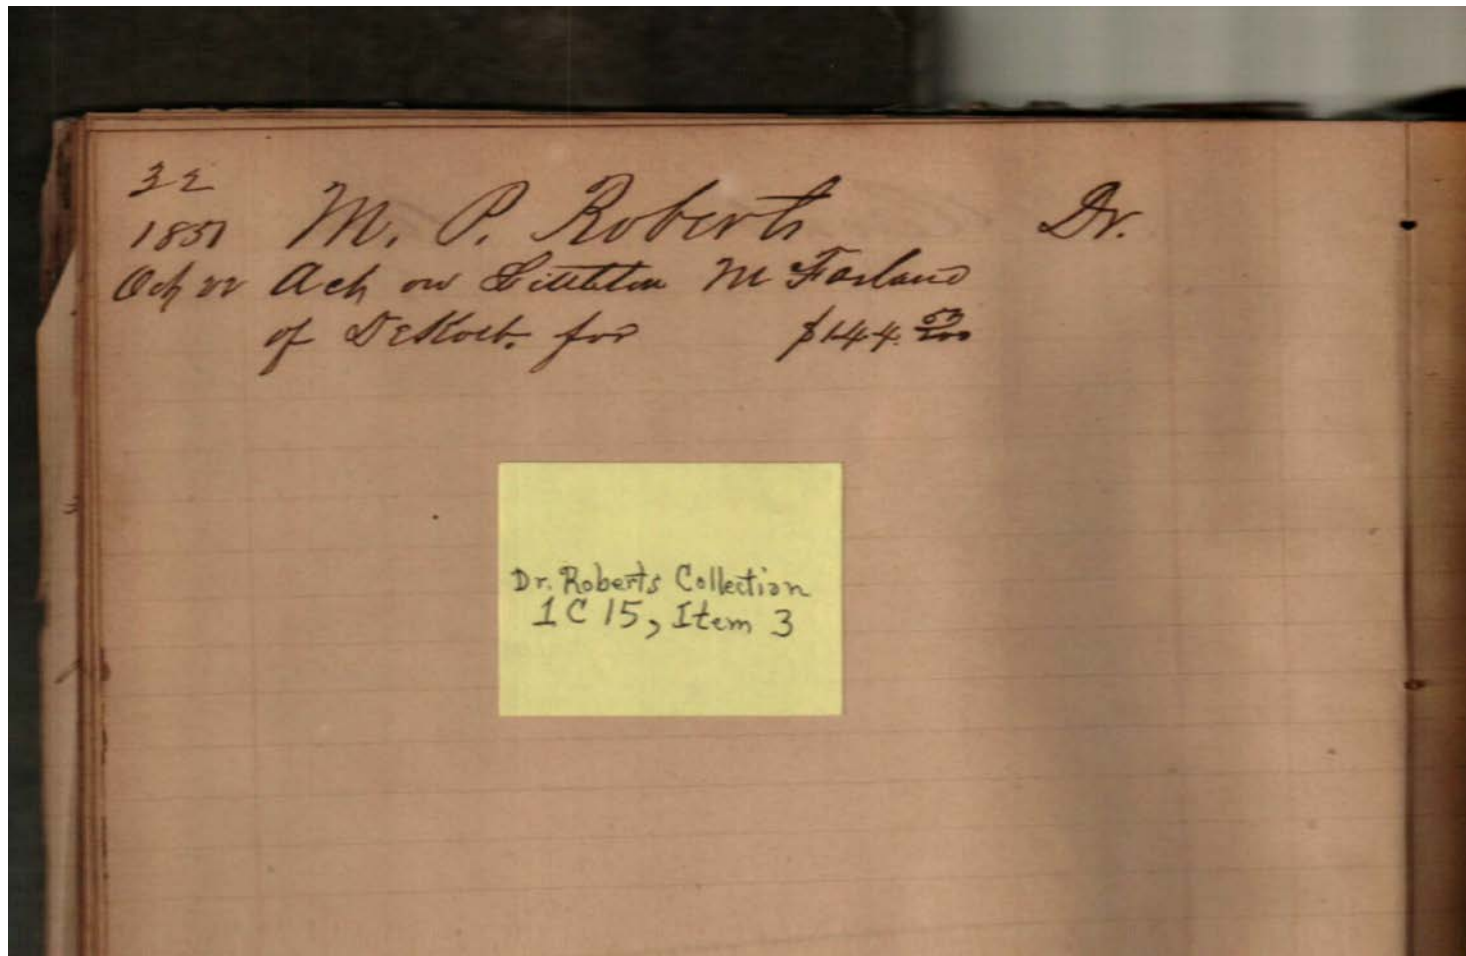 32
1851 M. P. Roberts Dr.
Oct 22 Act on Littleton McFarland
of DeKalb. for $144. 53/100
Dr. Roberts Collection
1C15, Item 3